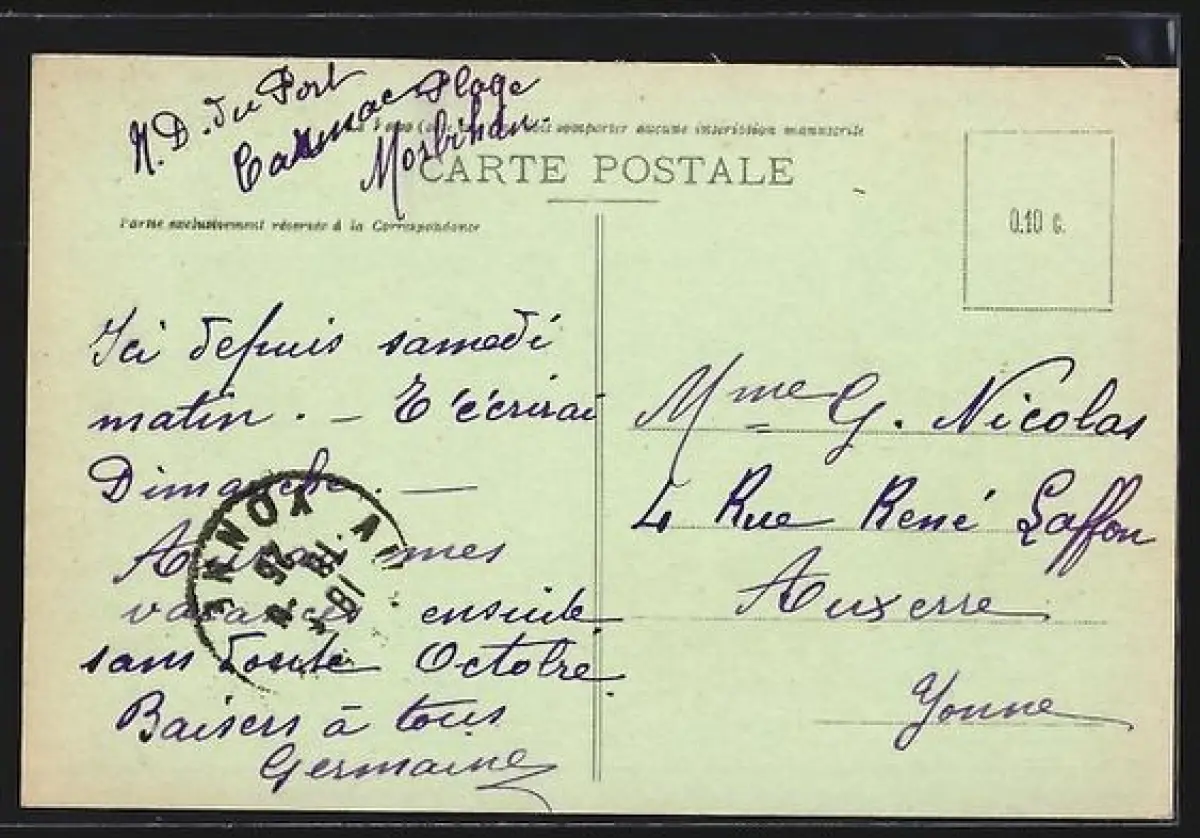 N. D. du Port
Carnac Plage
Morbihan.
comporter aucune inscription manuscrite
CARTE POSTALE
Partie exclusivement réservée à la Correspondance
0.10 c.
Ici depuis samedi
matin. — T'écrirai
Dimanche. —
mes
vacances ensuite
sans doute Octobre
Baisers à tous
Germaine
Mme G. Nicolas
4 Rue René Laffon
Auxerre
Yonne
YONNE